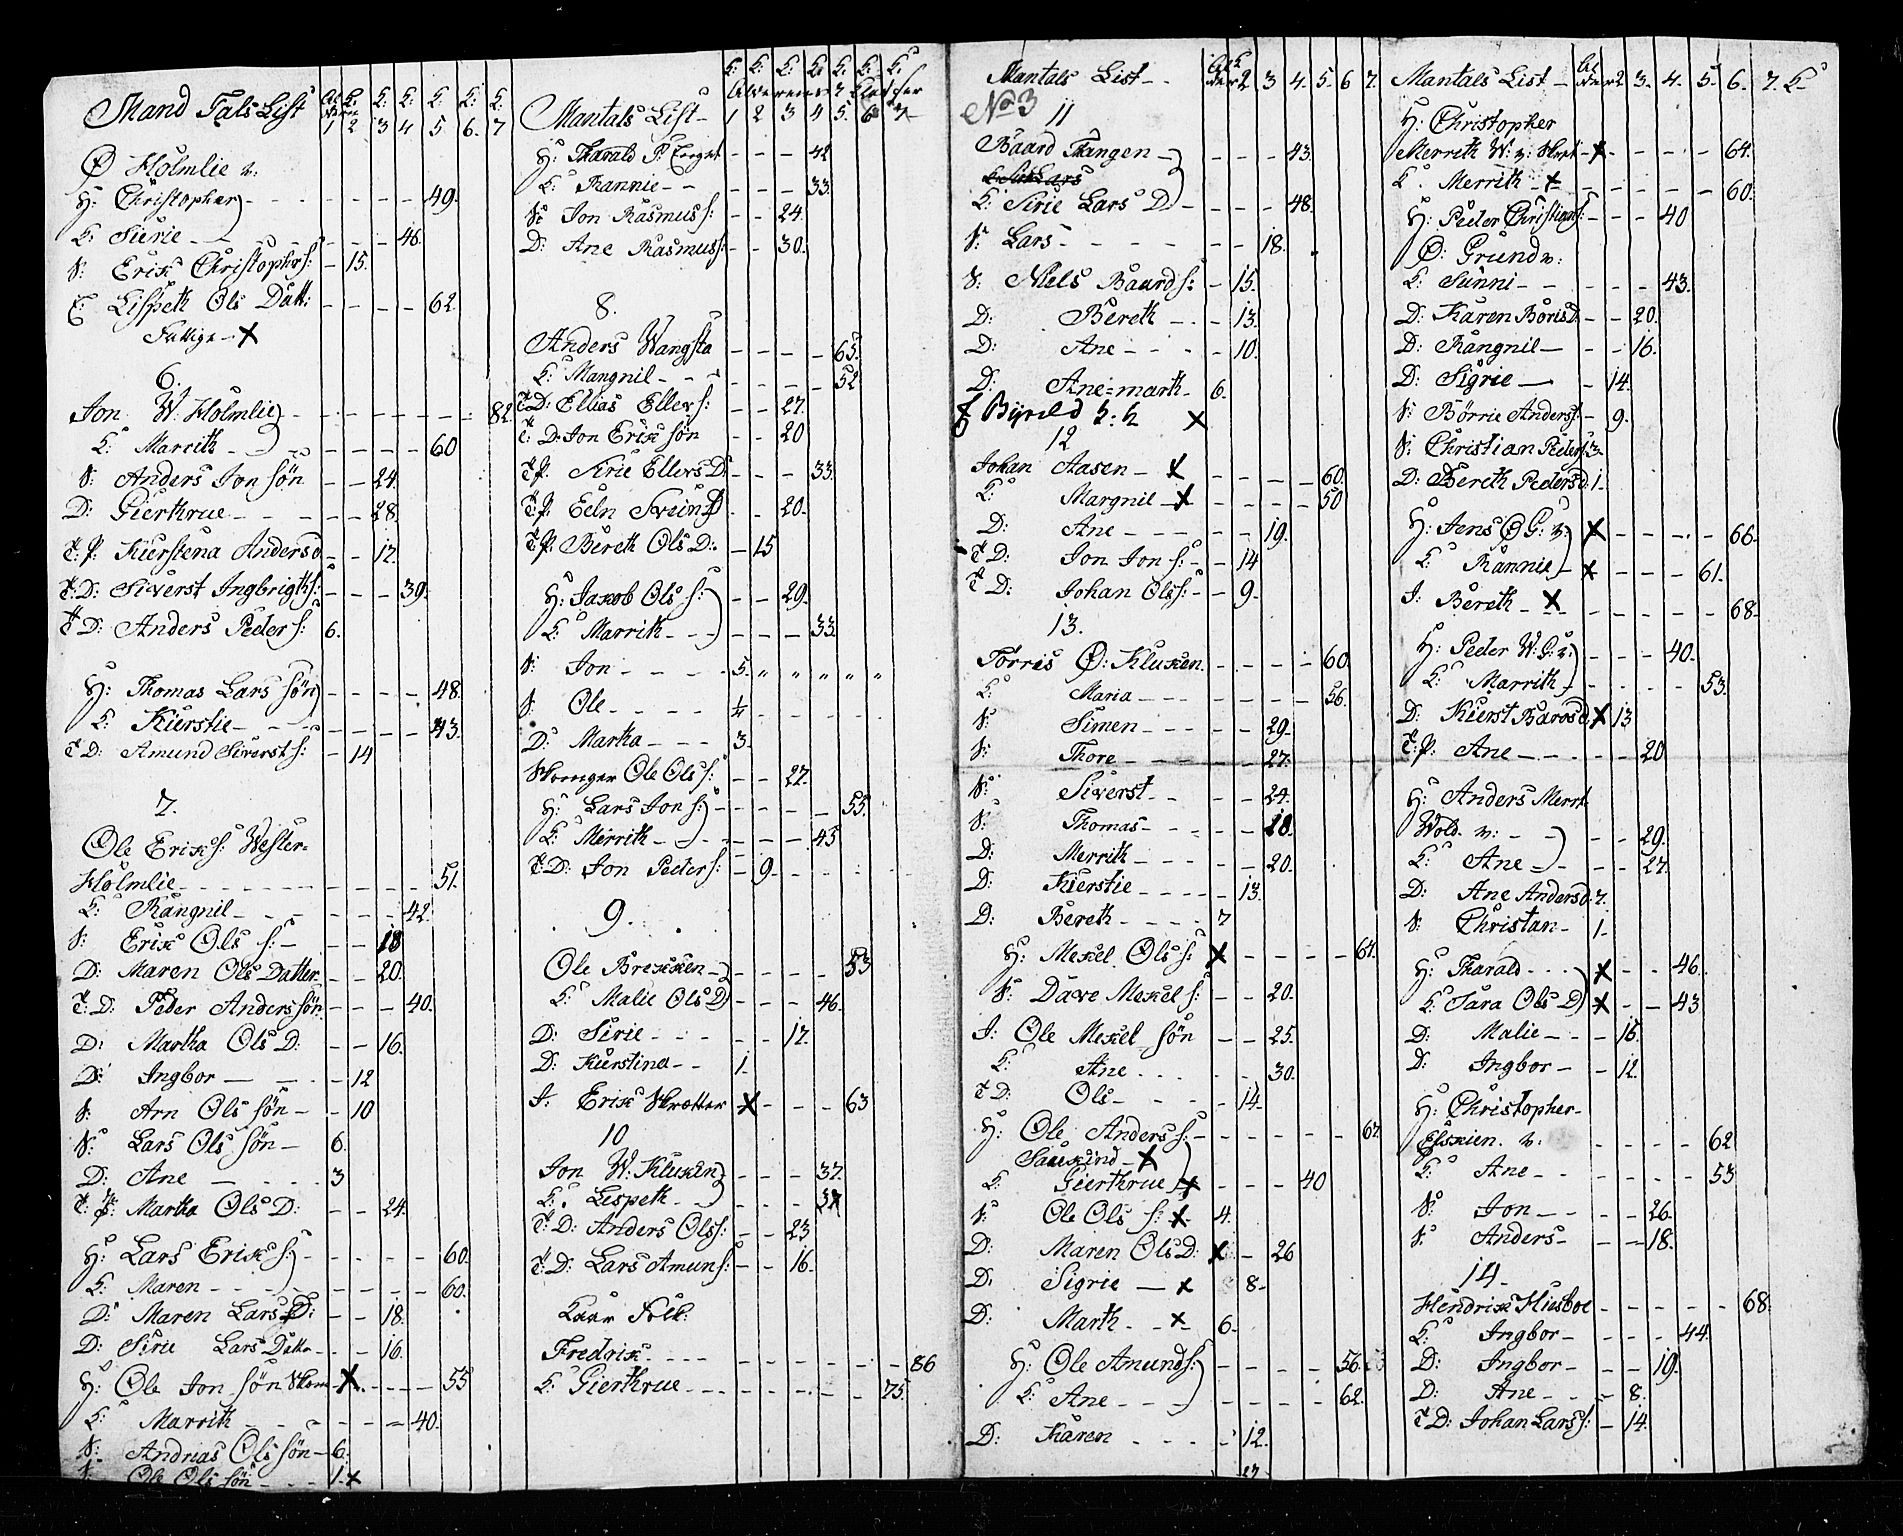 Mand Tals List 1 2 3 4 5 6. 7
Ø Holmlie v:
H: Christopher - 49.
K: Siirie - 46.
S: Erik Christophers: - 15.
E: Lisspeth Ols Datt: - 62.
Fattige - X
6.
Jon W: Holmlie - 82.
K: Marrith - 60
S: Anders Jon Søn - 24.
D: Gierthrue - 28.
T: P: Kierstena Andersd - 17.
T: D: Siverst Ingbrigths: - 39.
T: D: Anders Peders: 6.
H: Thomas Lars Søn - 48.
K: Kierstie - 43.
T: D: Amund Siversts: - 14
7.
Ole Eriks: Wester-
Holmlie - 51.
K: Rangnil - 42.
S: Erik Ols s: - 18
D: Maren Ols Datter - 20.
T: D: Peder Anderssøn - 40.
D: Martha Ols D: - 16.
D: Ingbor - 12
S: Arn Ols Søn - 10
S: Lars Ols Søn - 6.
D: Ane - 3
T: P: Martha Ols D: - 24.
H: Lars Eriks: - 60.
K: Maren - 60.
D: Maren Lars D: - 18.
D: Sirie Lars Datter - 16.
H: Ole Jon Søn Skom X - 55
K: Marrith - 40.
S: Andrias Ols Søn - 6.
S: Ole Ols Søn - 1. x
K: K: K: K: K: K: K:
Alderens 7 Classer
Mantals List - 1 2 3 4 5. 6 7
H: Harald P: - 42
K: Rannie - 33.
S: Jon Rasmus s: - 24.
D: Ane Rasmus s: - 30.
8.
Anders Wangsta - 65.
K: Mangnil - 52
T: D: Ellias Ellers: - 27.
T: D: Jon Erik Søn - 20
T: P. Sirie Ellers D: - 33.
T: P. Eeln Sveins D - 20.
T: P. Bereth Ols D: - 15
H: Jakob Ols s: - 29.
K: Marrith - 33.
S: Jon - 5. " " " " "
S: Ole - 1/4
D: Martha - 3.
Skomger Ole Ols s: - 27.
H: Lars Jon s: - 55.
K: Merrith - 45
T: D: Jon Peders: - 9.
9.
Ole Brekken - 53
K: Malie Ols D - 46.
D: Sirie - 17.
D: Kierstina - 1.
I: Erik Skrætter X - 63
10
Jon W: Kluken - 37.
K: Lespeth - 37
T: D: Anders Olss: - 23
T: D: Lars Amuns: - 16.
Kaar Folk:
Fredrik - 86
K: Gierthrue - 75.
Mantals List - 2 3 4. 5 6 7.
No 3
11
Baard Hangen - 43.
K: Sirie Lars D: - 48.
S: Lars - 18.
S: Niels Baards: - 15.
D: Bereth - 13.
D: Ane - 10.
D: Ane=marth - 6.
12
Johan Aasen - X - 60.
K: Margnil - X - 50
D: Ane - 19.
T D: Jon Jon s: - 14
T D: Johan Olss: - 9.
13.
Torris Ø: Kluken - 60.
K: Maria - 56.
S: Simen - 29.
S: Thore - 27.
S: Siverst - 24.
S: Thomas - 18.
D: Merrith - 20.
D: Kierstie - 13.
D: Bereth - 7
H: Mekel Ols s: X - 61.
S: Dave Mekel s: - 20.
I: Ole Mekel søn - 25.
K: Ane - 30.
T D: Ols - 14.
H: Ole Anders s: - 67.
- X
K: Gierthrue X - 40
S: Ole Ols s: X - 4.
D: Maren Ols D: X - 26
D: Sigrie - x 8-
D: Marth - x - 6.
H: Ole Amunds: - 56.
K: Ane - 62.
D: Karen - 12.
27
Mantals List - 2 3. 4. 5. 6. 7. K-
H: Christopher
Merrith W: v: X - 64.
K. Merrith - X - 60.
H: Peder Christians: - 40
Ø: Grund v:
K: Sunni - 43.
D: Karen Børisd: - 20.
D: Rangnil - 16.
D: Sigrie - 14.
S: Børrie Anders: - 9.
S: Christian Peders 3-
D: Bereth Pedersd: 1.
H: Jens Ø G: v: X - 66-
K: Rannie X - 61.
I: Bereth - X - 68-
H: Peder W: G: v: - 40-
K: Marrith - 53.
D: Kierst X 13
T: P: Ane - 20
H: Anders Merrt
Wold v: - 29.
K: Ane - 27.
D: Ane Andersd 7.
S: Christan - 1-
H: Harald - X - 46.
K: Sara Ols D X - 43
D: Malie - 15.
D: Ingbor - 12.
H: Christopher-
v: - 62
K: Ane - 53
S: Jon - 26.
S: Anders - 18.
14-
Hendrik - 68.
K: Ingbor - 44.
D: Ingbor - 19.
D: Ane - 8.
T D: Johan Larss: - 14.